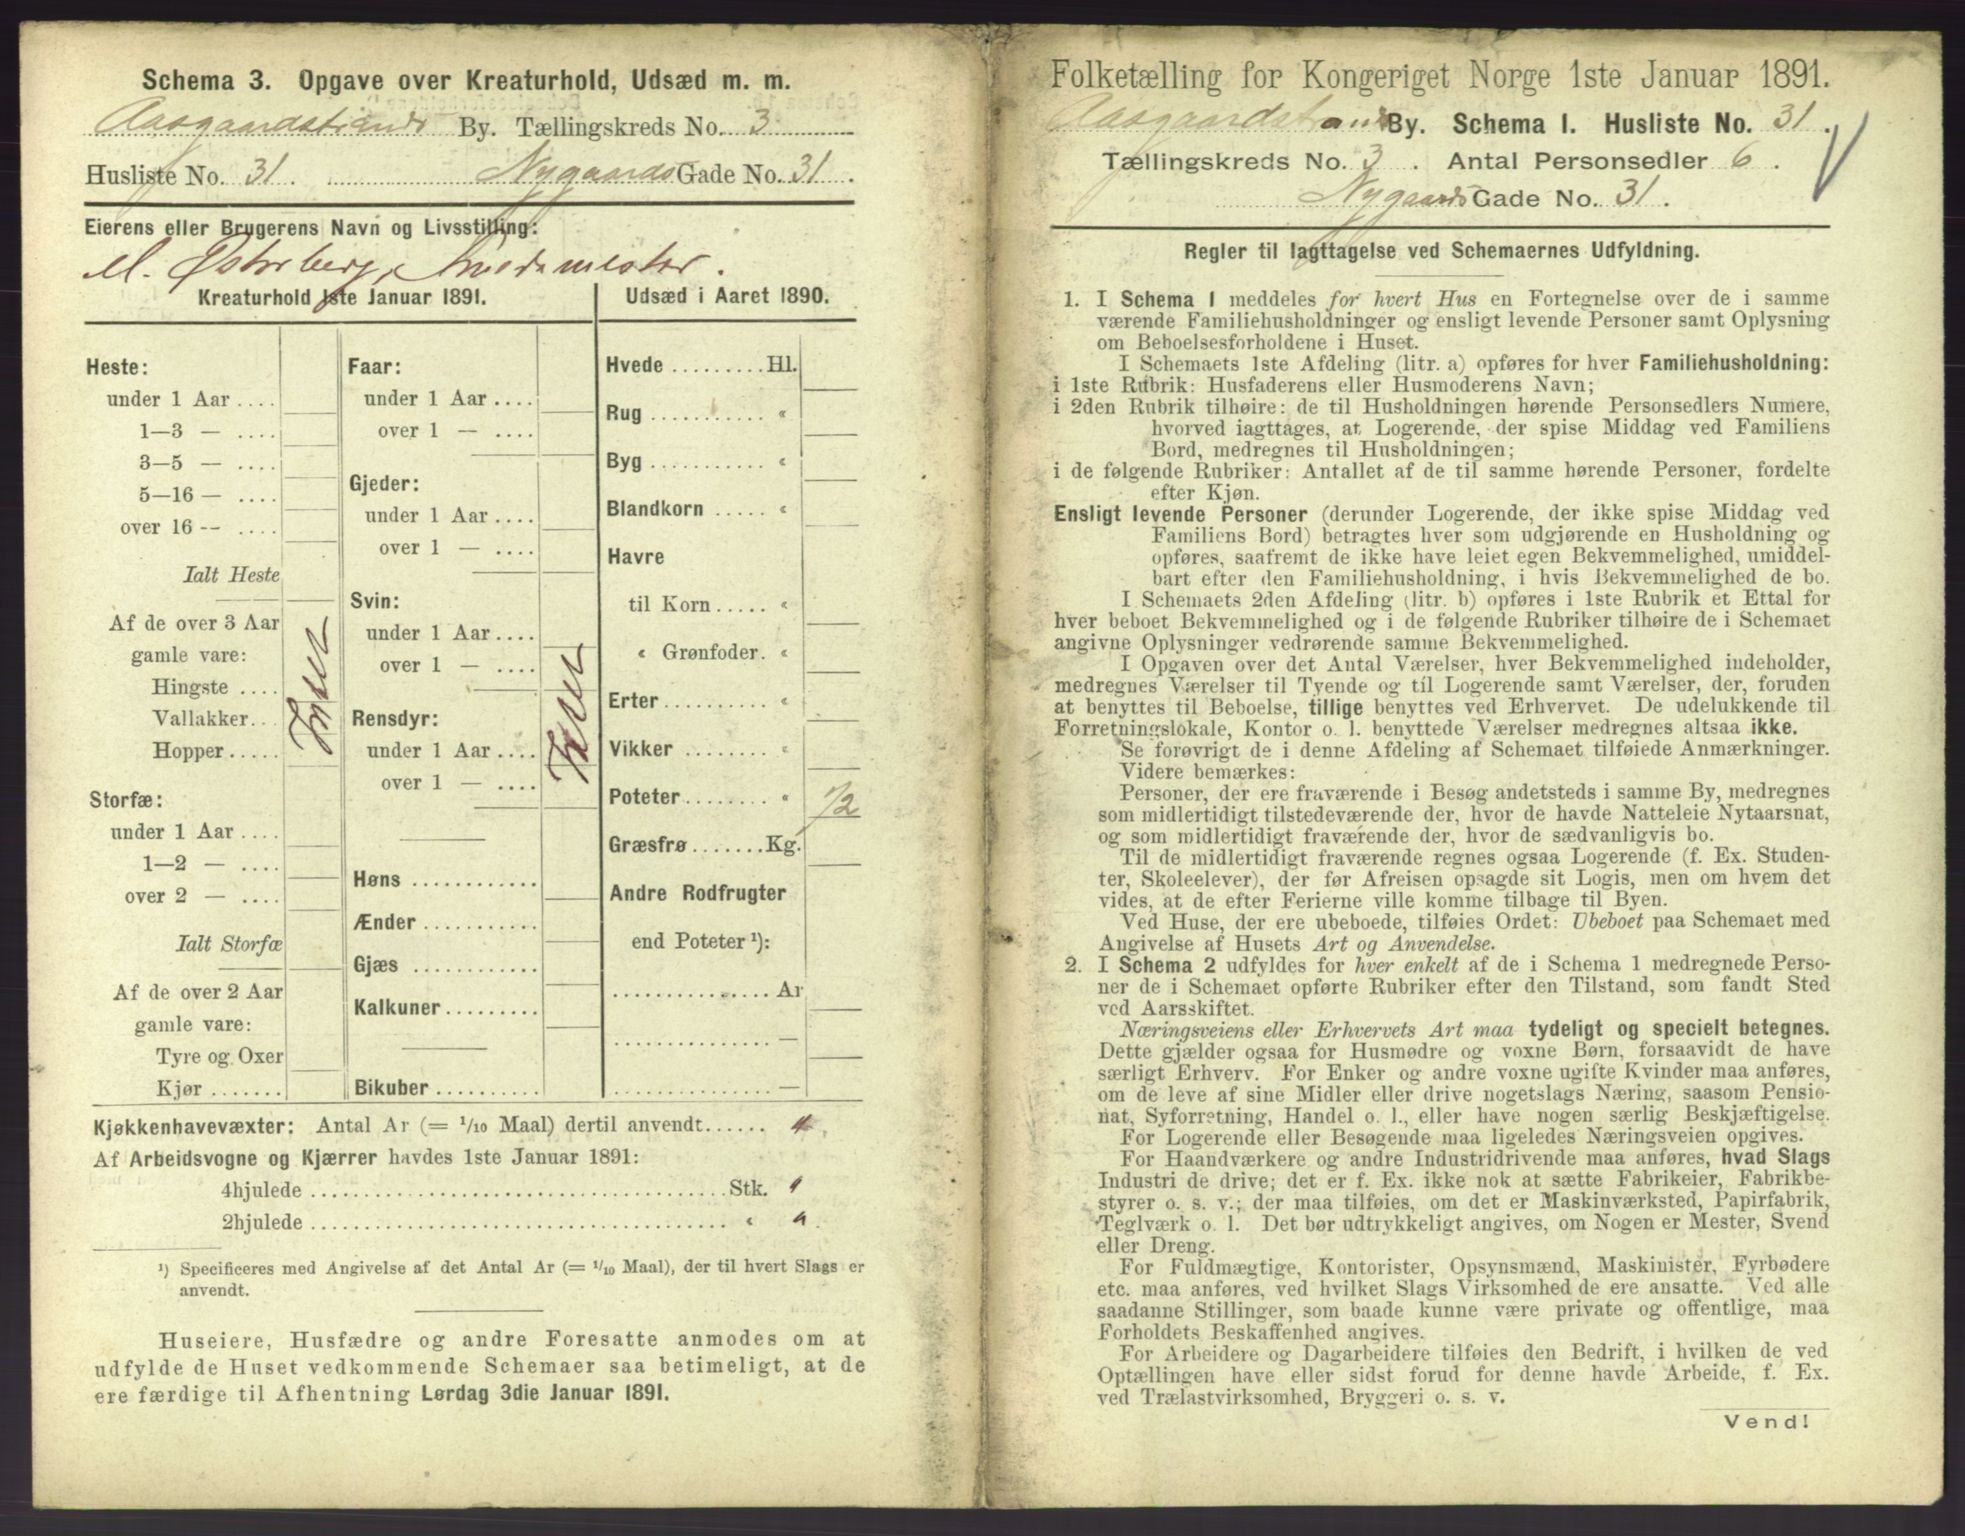 Schema 3. Opgave over Kreaturhold, Udsæd m. m.
Aasgaardstrands By. Tællingskreds No. 3
Husliste No. 31. Nygaards Gade No. 31.
Eierens eller Brugerens Navn og Livsstilling:
M. Østerberg,
Kreaturhold 1ste Januar 1891.
Heste:
under 1 Aar....
1—3 — ....
3—5 — ....
5—16 — ....
over 16 -- ....
Ialt Heste
Af de over 3 Aar
gamle vare:
Hingste ....
Vallakker...
Hopper .....
Storfæ:
under 1 Aar ....
1—2 — ....
over 2 — ....
Ialt Storfæ
Af de over 2 Aar
gamle vare:
Tyre og Oxer
Kjør .......
Faar:
under 1 Aar ....
over 1 — ....
Gjeder:
under 1 Aar ....
over 1 — ....
Svin:
under 1 Aar ....
over 1 — ....
Rensdyr:
under 1 Aar ....
over 1 — ....
Høns ............
Ænder ...........
Gjæs ............
Kalkuner .........
Bikuber ..........
Udsæd i Aaret 1890.
Hvede .........Hl.
Rug ........... «
Byg ........... «
Blandkorn ..... «
Havre
til Korn ..... «
« Grønfoder. «
Erter .......... «
Vikker ......... «
Poteter ........ « 1/2
Græsfrø .......Kg.
Andre Rodfrugter
end Poteter ¹):
............... Ar
............... —
............... —
Kjøkkenhavevæxter: Antal Ar (= 1/10 Maal) dertil anvendt......
Af Arbeidsvogne og Kjærrer havdes 1ste Januar 1891:
4hjulede ........................................ Stk.
2hjulede ........................................ «
¹) Specificeres med Angivelse af det Antal Ar (= 1/10 Maal), der til hvert Slags er
anvendt.
Huseiere, Husfædre og andre Foresatte anmodes om at
udfylde de Huset vedkommende Schemaer saa betimeligt, at de
ere færdige til Afhentning Lørdag 3die Januar 1891.
Folketælling for Kongeriget Norge 1ste Januar 1891.
Aasgaardstrands By. Schema I. Husliste No. 31.
Tællingskreds No. 3. Antal Personsedler 6.
Nygaards Gade No. 31.
Regler til Iagttagelse ved Schemaernes Udfyldning.
1. I Schema I meddeles for hvert Hus en Fortegnelse over de i samme
værende Familiehusholdninger og ensligt levende Personer samt Oplysning
om Beboelsesforholdene i Huset.
I Schemaets 1ste Afdeling (litr. a) opføres for hver Familiehusholdning:
i 1ste Rubrik: Husfaderens eller Husmoderens Navn;
i 2den Rubrik tilhøire: de til Husholdningen hørende Personsedlers Numere,
hvorved iagttages, at Logerende, der spise Middag ved Familiens
Bord, medregnes til Husholdningen;
i de følgende Rubriker: Antallet af de til samme hørende Personer, fordelte
efter Kjøn.
Ensligt levende Personer (derunder Logerende, der ikke spise Middag ved
Familiens Bord) betragtes hver som udgjørende en Husholdning og
opføres, saafremt de ikke have leiet egen Bekvemmelighed, umiddel-
bart efter den Familiehusholdning, i hvis Bekvemmelighed de bo.
I Schemaets 2den Afdeling (litr. b) opføres i 1ste Rubrik et Ettal for
hver beboet Bekvemmelighed og i de følgende Rubriker tilhøire de i Schemaet
angivne Oplysninger vedrørende samme Bekvemmelighed.
I Opgaven over det Antal Værelser, hver Bekvemmelighed indeholder,
medregnes Værelser til Tyende og til Logerende samt Værelser, der, foruden
at benyttes til Beboelse, tillige benyttes ved Erhvervet. De udelukkende til
Forretningslokale, Kontor o. l. benyttede Værelser medregnes altsaa ikke.
Se forøvrigt de i denne Afdeling af Schemaet tilføiede Anmærkninger.
Videre bemærkes:
Personer, der ere fraværende i Besøg andetsteds i samme By, medregnes
som midlertidigt tilstedeværende der, hvor de havde Natteleie Nytaarsnat,
og som midlertidigt fraværende der, hvor de sædvanligvis bo.
Til de midlertidigt fraværende regnes ogsaa Logerende (f. Ex. Studen-
ter, Skoleelever), der før Afreisen opsagde sit Logis, men om hvem det
vides, at de efter Ferierne ville komme tilbage til Byen.
Ved Huse, der ere ubeboede, tilføies Ordet: Ubeboet paa Schemaet med
Angivelse af Husets Art og Anvendelse.
2. I Schema 2 udfyldes for hver enkelt af de i Schema 1 medregnede Perso-
ner de i Schemaet opførte Rubriker efter den Tilstand, som fandt Sted
ved Aarsskiftet.
Næringsveiens eller Erhvervets Art maa tydeligt og specielt betegnes.
Dette gjælder ogsaa for Husmødre og voxne Børn, forsaavidt de have
særligt Erhverv. For Enker og andre voxne ugifte Kvinder maa anføres,
om de leve af sine Midler eller drive nogetslags Næring, saasom Pensio-
nat, Syforretning, Handel o. l., eller have nogen særlig Beskjæftigelse.
For Logerende eller Besøgende maa ligeledes Næringsveien opgives.
For Haandværkere og andre Industridrivende maa anføres, hvad Slags
Industri de drive; det er f. Ex. ikke nok at sætte Fabrikeier, Fabrikbe-
styrer o. s. v.; der maa tilføies, om det er Maskinværksted, Papirfabrik,
Teglværk o. l. Det bør udtrykkeligt angives, om Nogen er Mester, Svend
eller Dreng.
For Fuldmægtige, Kontorister, Opsynsmænd, Maskinister, Fyrbødere
etc. maa anføres, ved hvilket Slags Virksomhed de ere ansatte. Ved alle
saadanne Stillinger, som baade kunne være private og offentlige, maa
Forholdets Beskaffenhed angives.
For Arbeidere og Dagarbeidere tilføies den Bedrift, i hvilken de ved
Optællingen have eller sidst forud for denne havde Arbeide, f. Ex.
ved Trælastvirksomhed, Bryggeri o. s. v.
Vend!